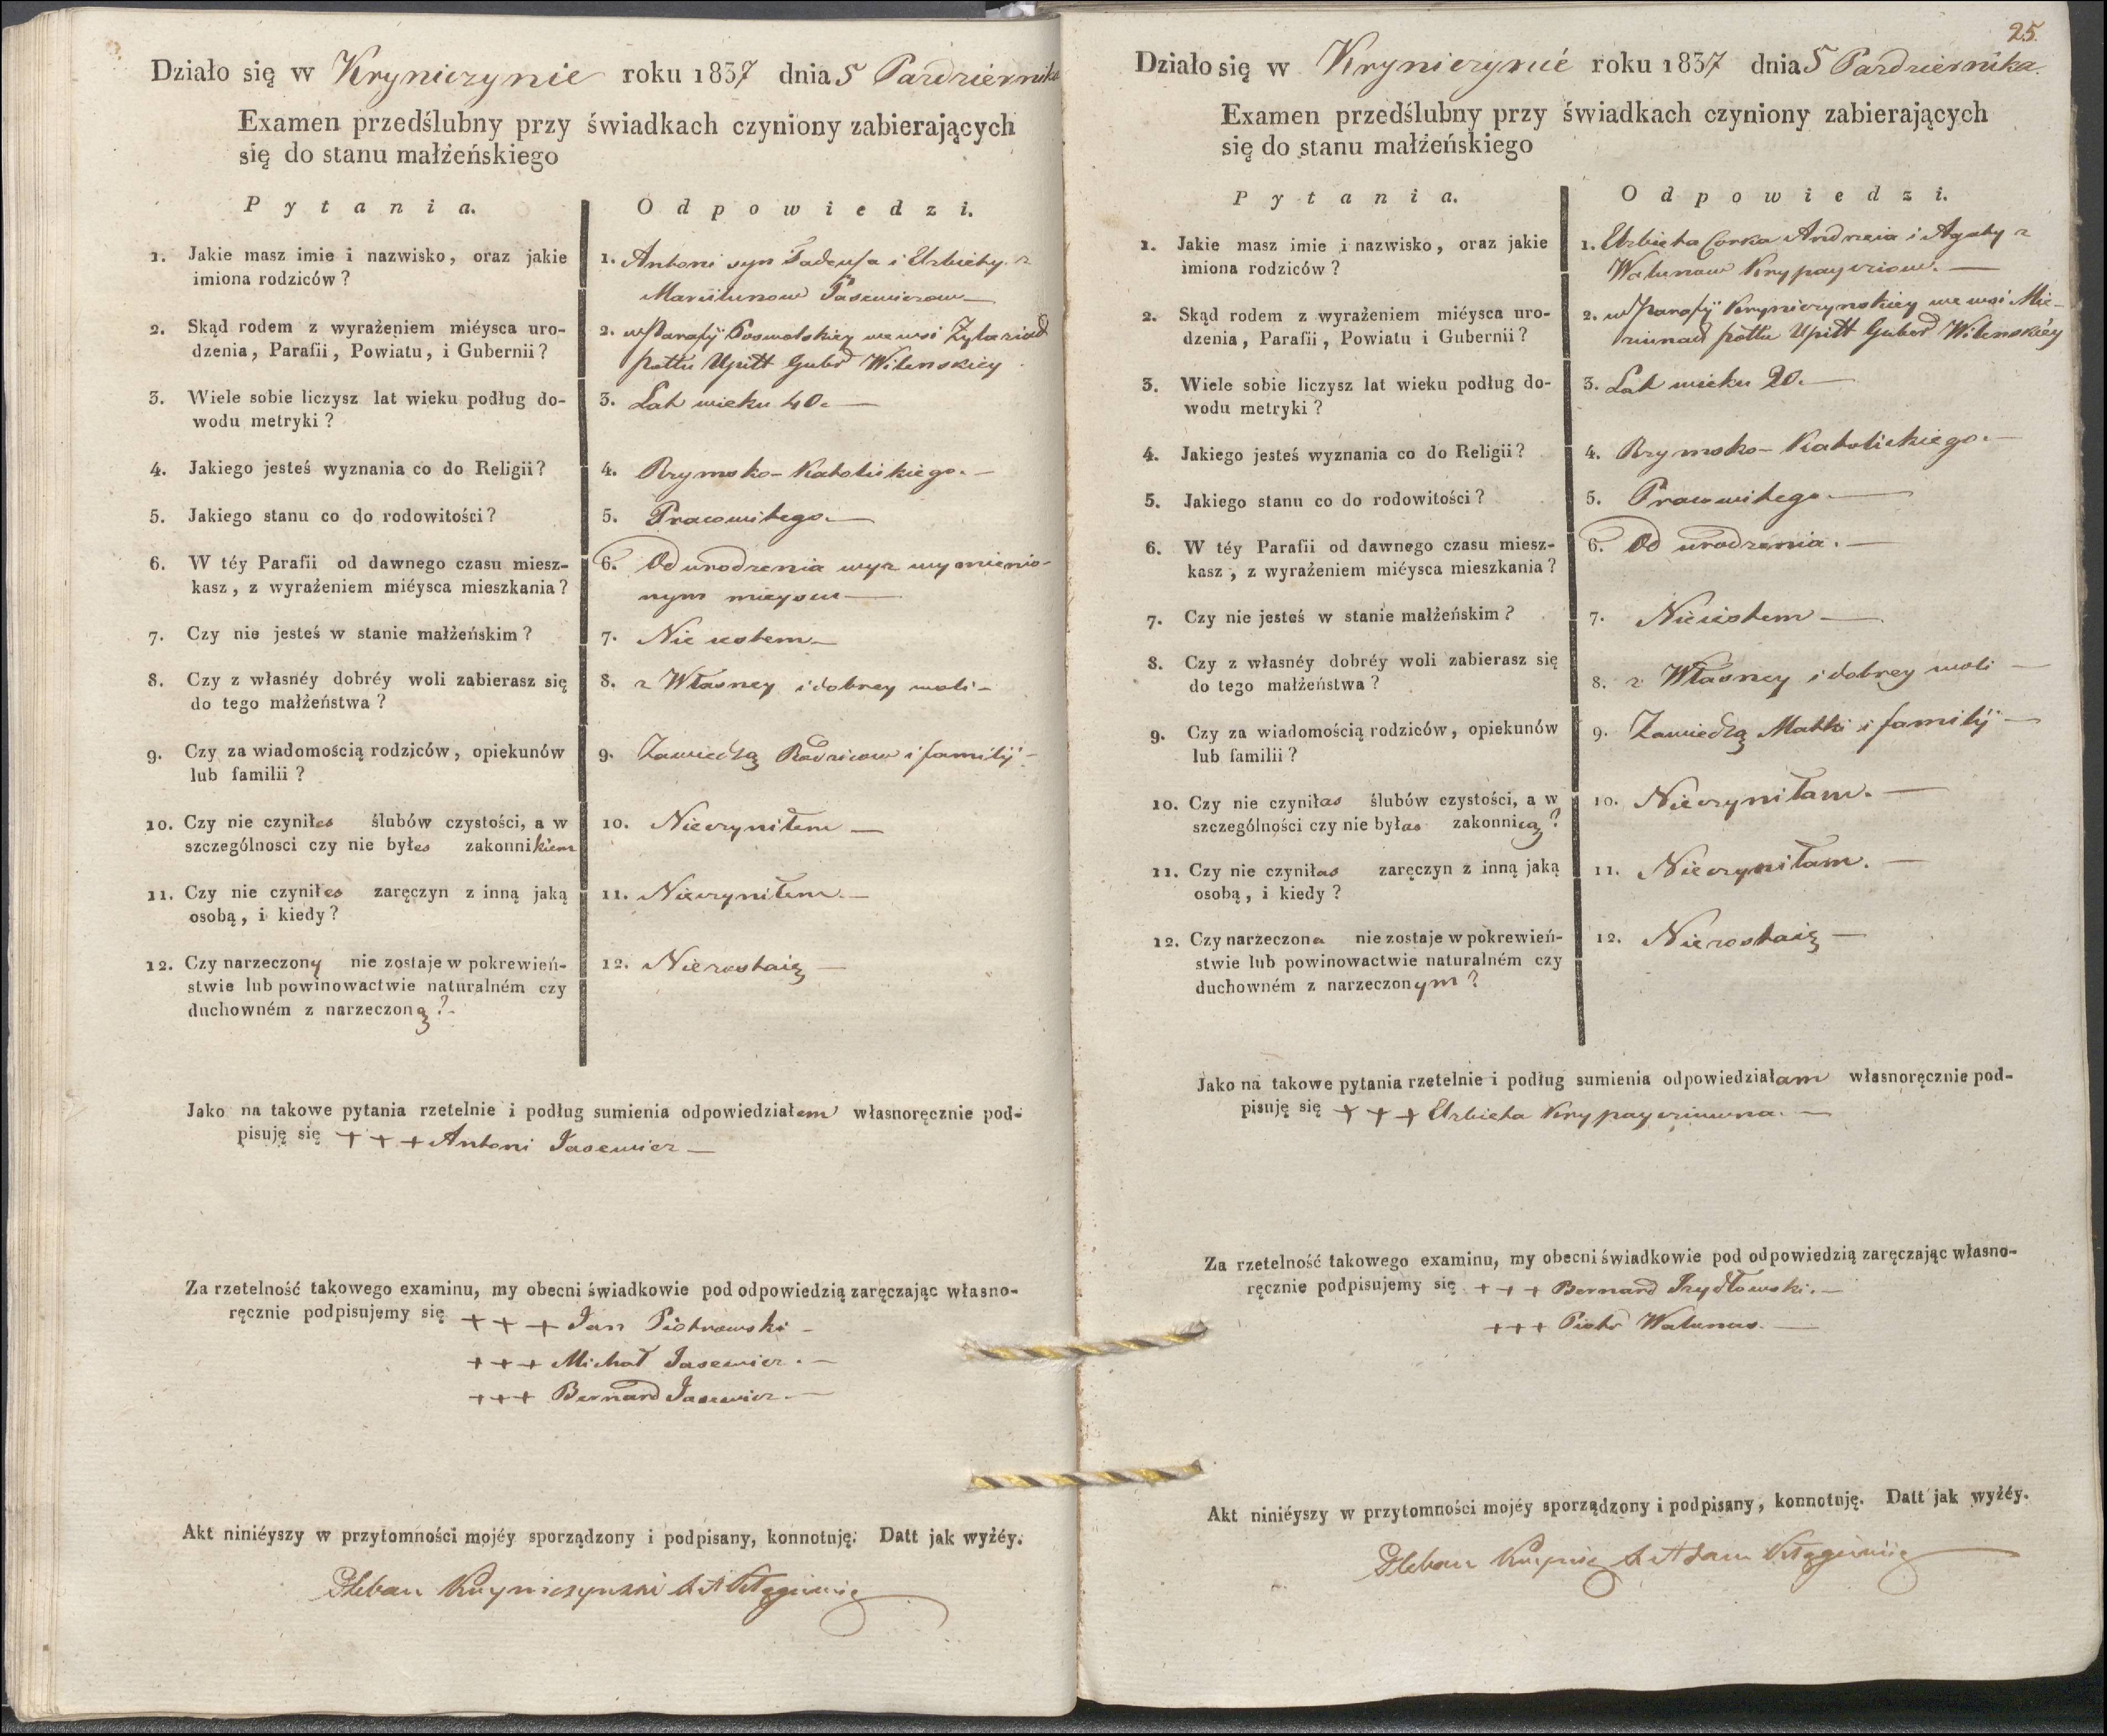 Działo się w Kryniczynie roku 1837 dnia 5 Pazdziernika
Examen przedślubny przy świadkach czyniony zabierających
się do stanu małżeńskiego
Pytania.
Odpowiedzi.
1. Jakie masz imie i nazwisko, oraz jakie
imiona rodziców?
1. Antoni syn Tadeusza i Elzbiety z
Jasewiczow
2. Skąd rodem z wyrażeniem miéysca uro-
dzenia, Parafii, Powiatu, i Gubernii?
2. w Parafÿ Poswolskiey we wsi
Pottu Upitt Gubr Wilenskiey
3. Wiele sobie liczysz lat wieku podług do-
wodu metryki?
3. Lat wieku 40.
4. Jakiego jesteś wyznania co do Religii?
4. Rzymsko-Katolickiego.
5. Jakiego stanu co do rodowitości?
5. Pracowitego.
6. W téy Parafii od dawnego czasu miesz-
kasz, z wyrażeniem miéysca mieszkania?
6. Od urodzenia wyz wymienio-
nym mieyscu
7. Czy nie jesteś w stanie małżeńskim?
7. Nie iestem
8. Czy z własnéy dobréy woli zabierasz się
do tego małżeństwa?
8. z Własney i dobrey woli
9. Czy za wiadomością rodziców, opiekunów
lub familii?
9. Zawiedzą Rodzicow i familÿ
10. Czy nie czyniłes ślubów czystości, a w
szczególnosci czy nie byłes zakonnikiem
10. Nieczyniłem
11. Czy nie czyniłes zaręczyn z inną jaką
osobą, i kiedy?
11. Nieczyniłem.
12. Czy narzeczony nie zostaje w pokrewień-
stwie lub powinowactwie naturalném czy
duchowném z narzeczoną?
12. Niezostaię
Jako na takowe pytania rzetelnie i podług sumienia odpowiedziałem własnoręcznie pod-
pisuję się + + + Antoni Jasewicz
Za rzetelność takowego examinu, my obecni świadkowie pod odpowiedzią zaręczając własno-
ręcznie podpisujemy się + + + Jan Piotrowski
+ + + Michał Jasewicz.
+ + + Bernard Jasewicz.
Akt niniéyszy w przytomności mojéy sporządzony i podpisany, konnotuję. Datt jak wyżéy.
Pleban Kryniczynski
25.
Działo się w Kryniczynié roku 1837 dnia 5 Pazdziernika.
Examen przedślubny przy świadkach czyniony zabierających
się do stanu małżeńskiego
Pytania.
Odpowiedzi.
1. Jakie masz imie i nazwisko, oraz jakie
imiona rodziców?
1. Elzbieta Corka Andrzeia i Agaty z
Walunow Krypayciow.
2. Skąd rodem z wyrażeniem miéysca uro-
dzenia, Parafii, Powiatu i Gubernii?
2. w Parafÿ Kryniczynskiey we wsi Mie-
pottu Upitt Guber Wilenskiéy
3. Wiele sobie liczysz lat wieku podług do-
wodu metryki?
3. Lat wieku 20.
4. Jakiego jesteś wyznania co do Religii?
4. Rzymsko-Katolickiego.
5. Jakiego stanu co do rodowitości?
5. Pracowitego
6. W téy Parafii od dawnego czasu miesz-
kasz, z wyrażeniem miéysca mieszkania?
6. Od urodzenia.
7. Czy nie jesteś w stanie małżeńskim?
7. Nieiestem
8. Czy z własnéy dobréy woli zabierasz się
do tego małżeństwa?
8. z Własney i dobrey woli
9. Czy za wiadomością rodziców, opiekunów
lub familii?
9. Zawiedzą Matki i familÿ
10. Czy nie czyniłas ślubów czystości, a w
szczególności czy nie byłas zakonnicą?
10. Nieczyniłam.
11. Czy nie czyniłas zaręczyn z inną jaką
osobą, i kiedy?
11. Nieczyniłam.
12. Czy narzeczona nie zostaje w pokrewień-
stwie lub powinowactwie naturalném czy
duchowném z narzeczonym?
12. Niezostaię
Jako na takowe pytania rzetelnie i podług sumienia odpowiedziałam własnoręcznie pod-
pisuję się + + + Elzbieta Krypayciowna.
Za rzetelność takowego examinu, my obecni świadkowie pod odpowiedzią zaręczając własno-
ręcznie podpisujemy się + + + Bernard Szydłowski.
+ + + Piotr Walunas.
Akt niniéyszy w przytomności mojéy sporządzony i podpisany, konnotuję. Datt jak wyżéy.
Pleban Adam